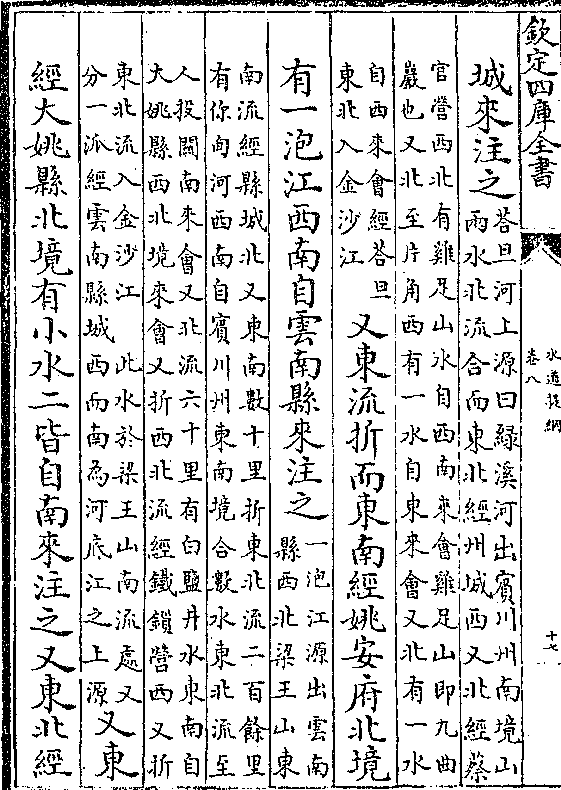 欽定四庫全書
水道提綱
卷八
十七
城來注之
荅旦河上源曰緑溪河出賓川州南境山
兩水北流合而東北經州城西又北經蔡
官營西北有雞足山水自西南來會雞足山即九曲
巖也又北至片角西有一水自東來會又北有一水
自西來會經荅旦
東北入金沙江
又東流折而東南經姚安府北境
有一泡江西南自雲南縣來注之
一泡江源出雲南
縣西北梁王山東
南流經縣城北又東南數十里折東北流二百餘里
有你甸河西南自賓川州東南境合數水東北流至
人投關南來會又北流六十里有白鹽井水東南自
大姚縣西北境來會又折西北流經鐵鎖營西又折
東北流入金沙江 此水於梁王山南流處又
分一派經雲南縣城西而南為河底江之上源
又東
經大姚縣北境有小水二皆自南來注之又東北經